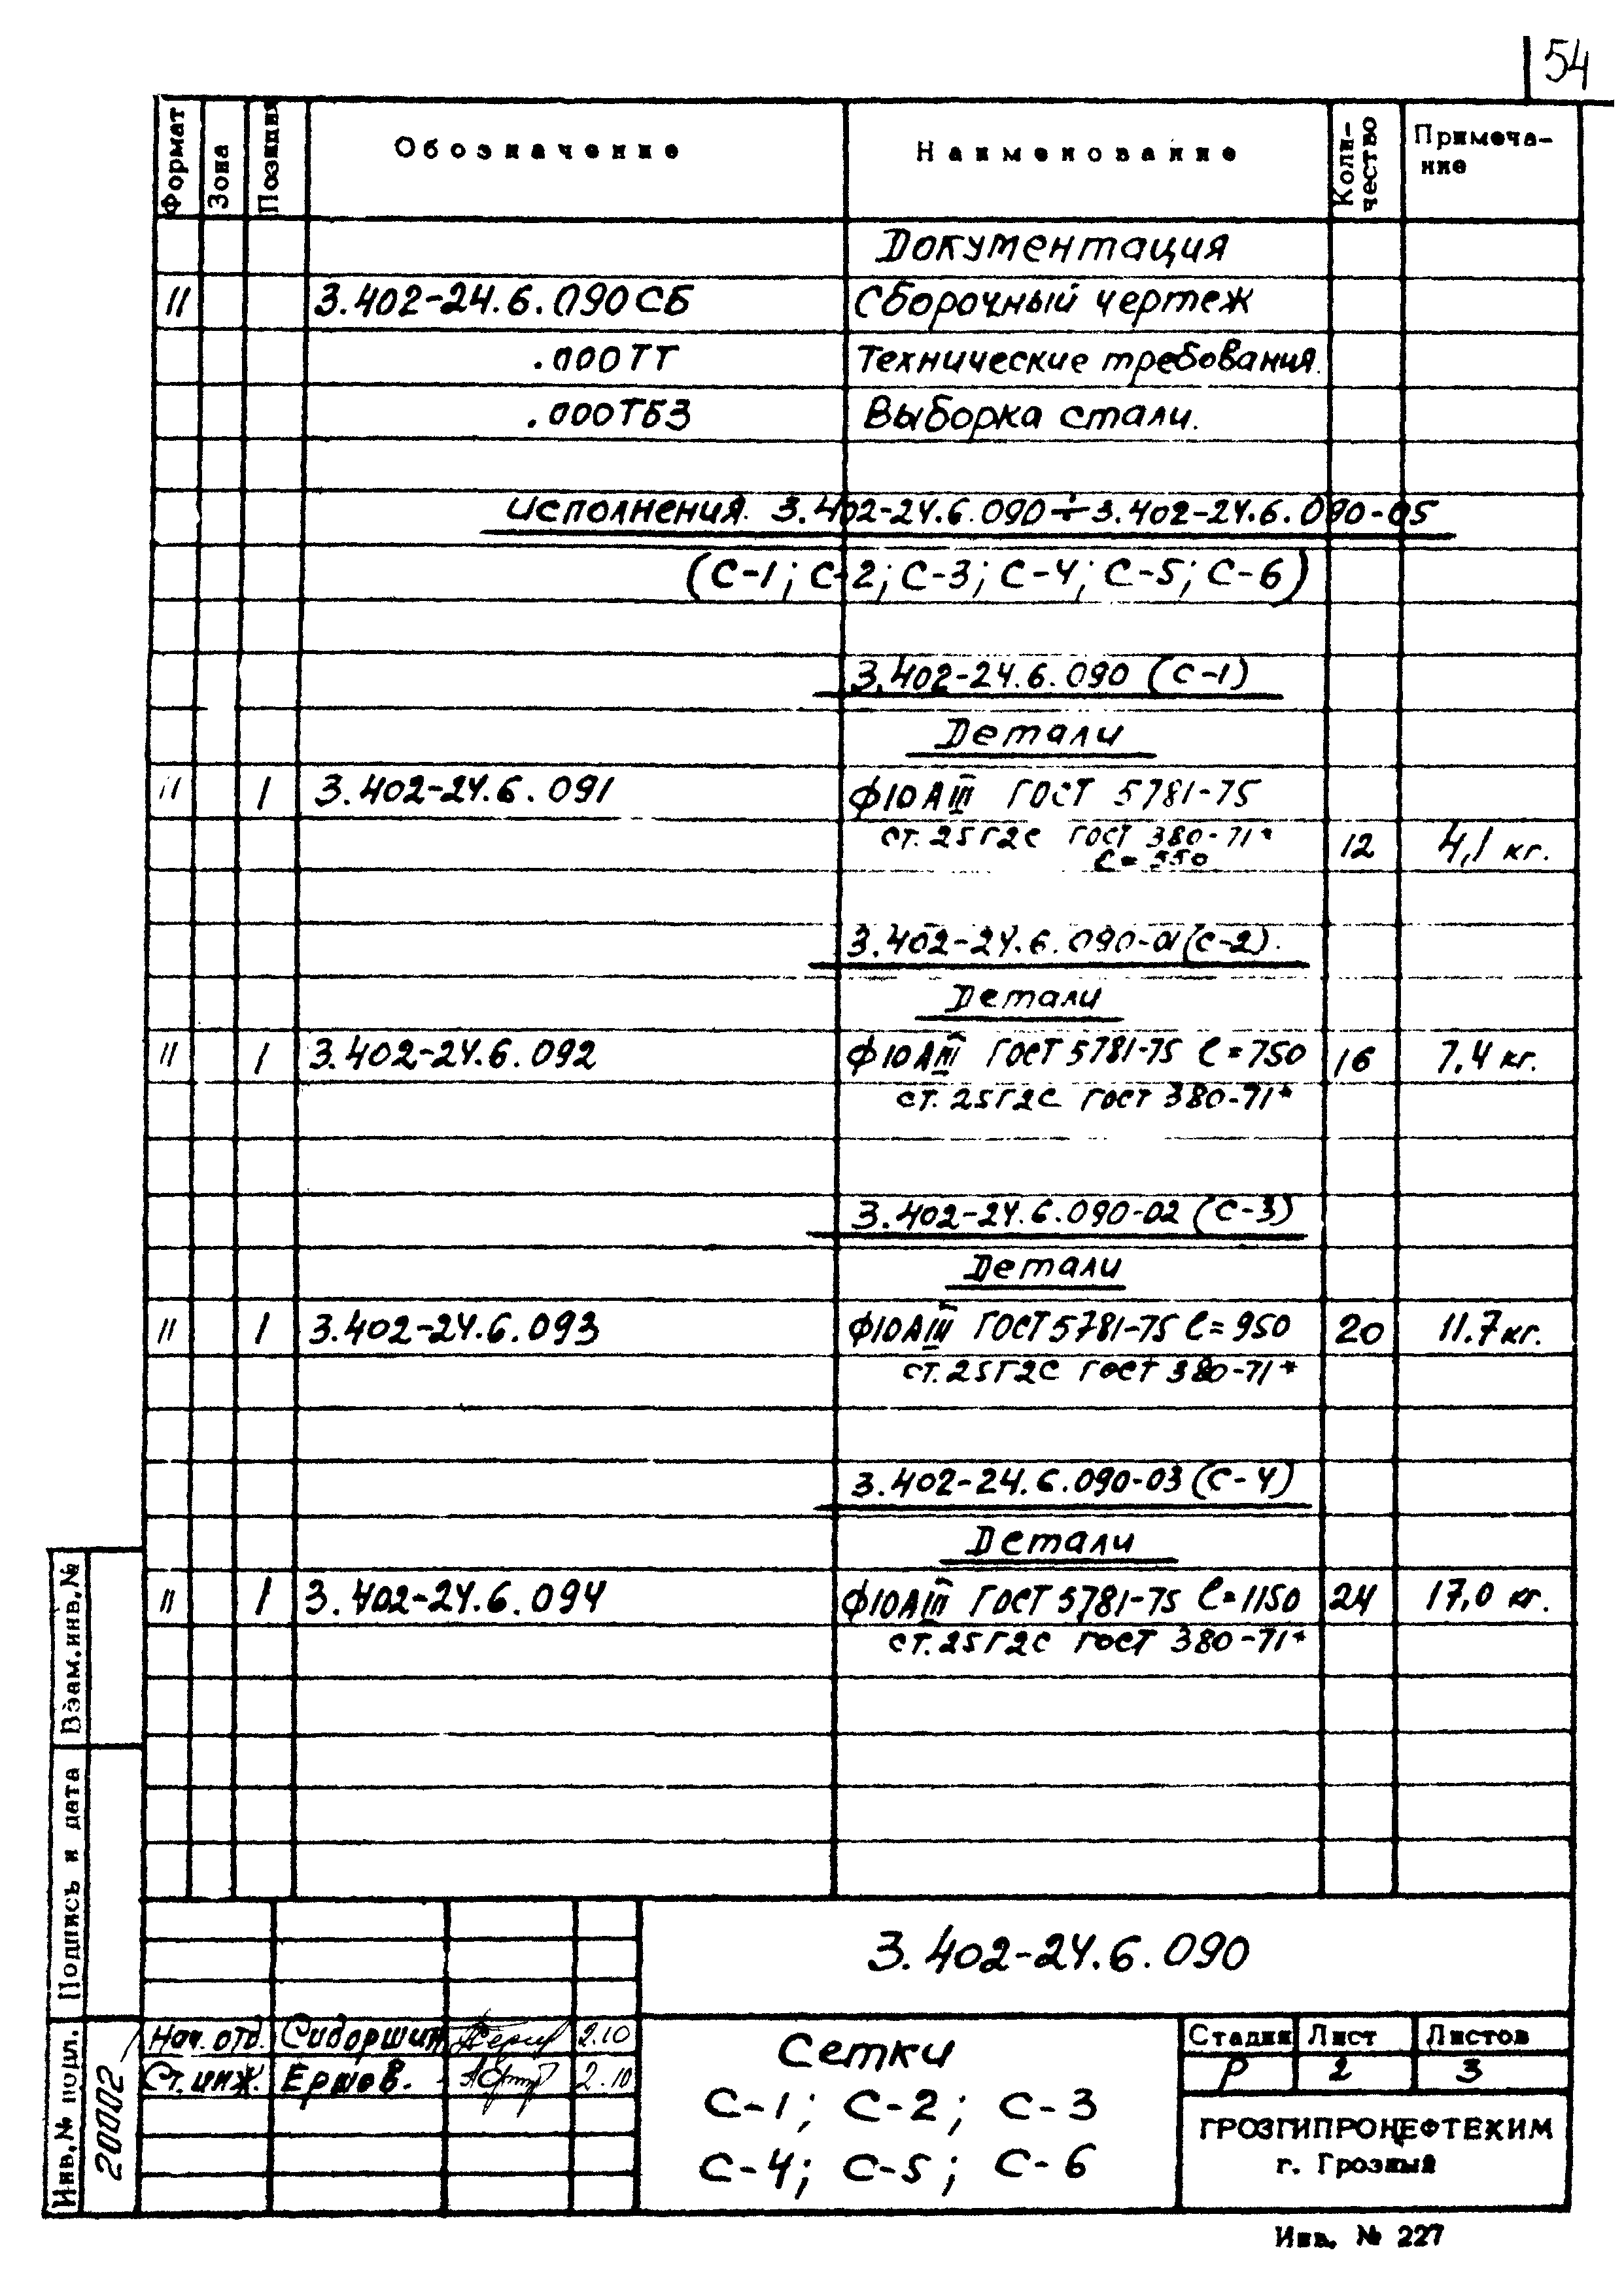 54
Формат Зона Позиция Обозначение Наименование Коли-чество Примеча-ние
Документация
11 3.402-24.6.090СБ Сборочный чертеж
.000ТТ Технические требования.
.000ТБЗ Выборка стали.
исполнения. 3.402-24.6.090÷3.402-24.6.090-05
(С-1; С-2; С-3; С-4; С-5; С-6)
3.402-24.6.090 (С-1)
Детали
11 1 3.402-24.6.091 ф10АIII ГОСТ 5781-75
ст. 25Г2С ГОСТ 380-71* 12 4,1 кг.
ℓ=550
3.402-24.6.090-01(С-2).
Детали
11 1 3.402-24.6.092 ф10АIII ГОСТ 5781-75 ℓ=750 16 7.4 кг.
ст. 25Г2С ГОСТ 380-71*
3.402-24.6.090-02 (С-3)
Детали
11 1 3.402-24.6.093 ф10АIII ГОСТ 5781-75 ℓ=950 20 11.7 кг.
ст. 25Г2С ГОСТ 380-71*
3.402-24.6.090-03 (С-4)
Детали
11 1 3.402-24.6.094 ф10АIII ГОСТ 5781-75 ℓ=1150 24 17,0 кг.
ст. 25Г2С ГОСТ 380-71*
Взам.инв.№
Подпись и дата
Инв.№ подл.
20002
3.402-24.6.090
Нач. отд. Сидоршин 2.10
Ст. инж. Ершов. 2.10
Сетки
С-1; С-2; С-3
С-4; С-5; С-6
Стадия Лист Листов
Р 2 3
ГРОЗГИПРОНЕФТЕХИМ
г. Грозный
Инв. № 227